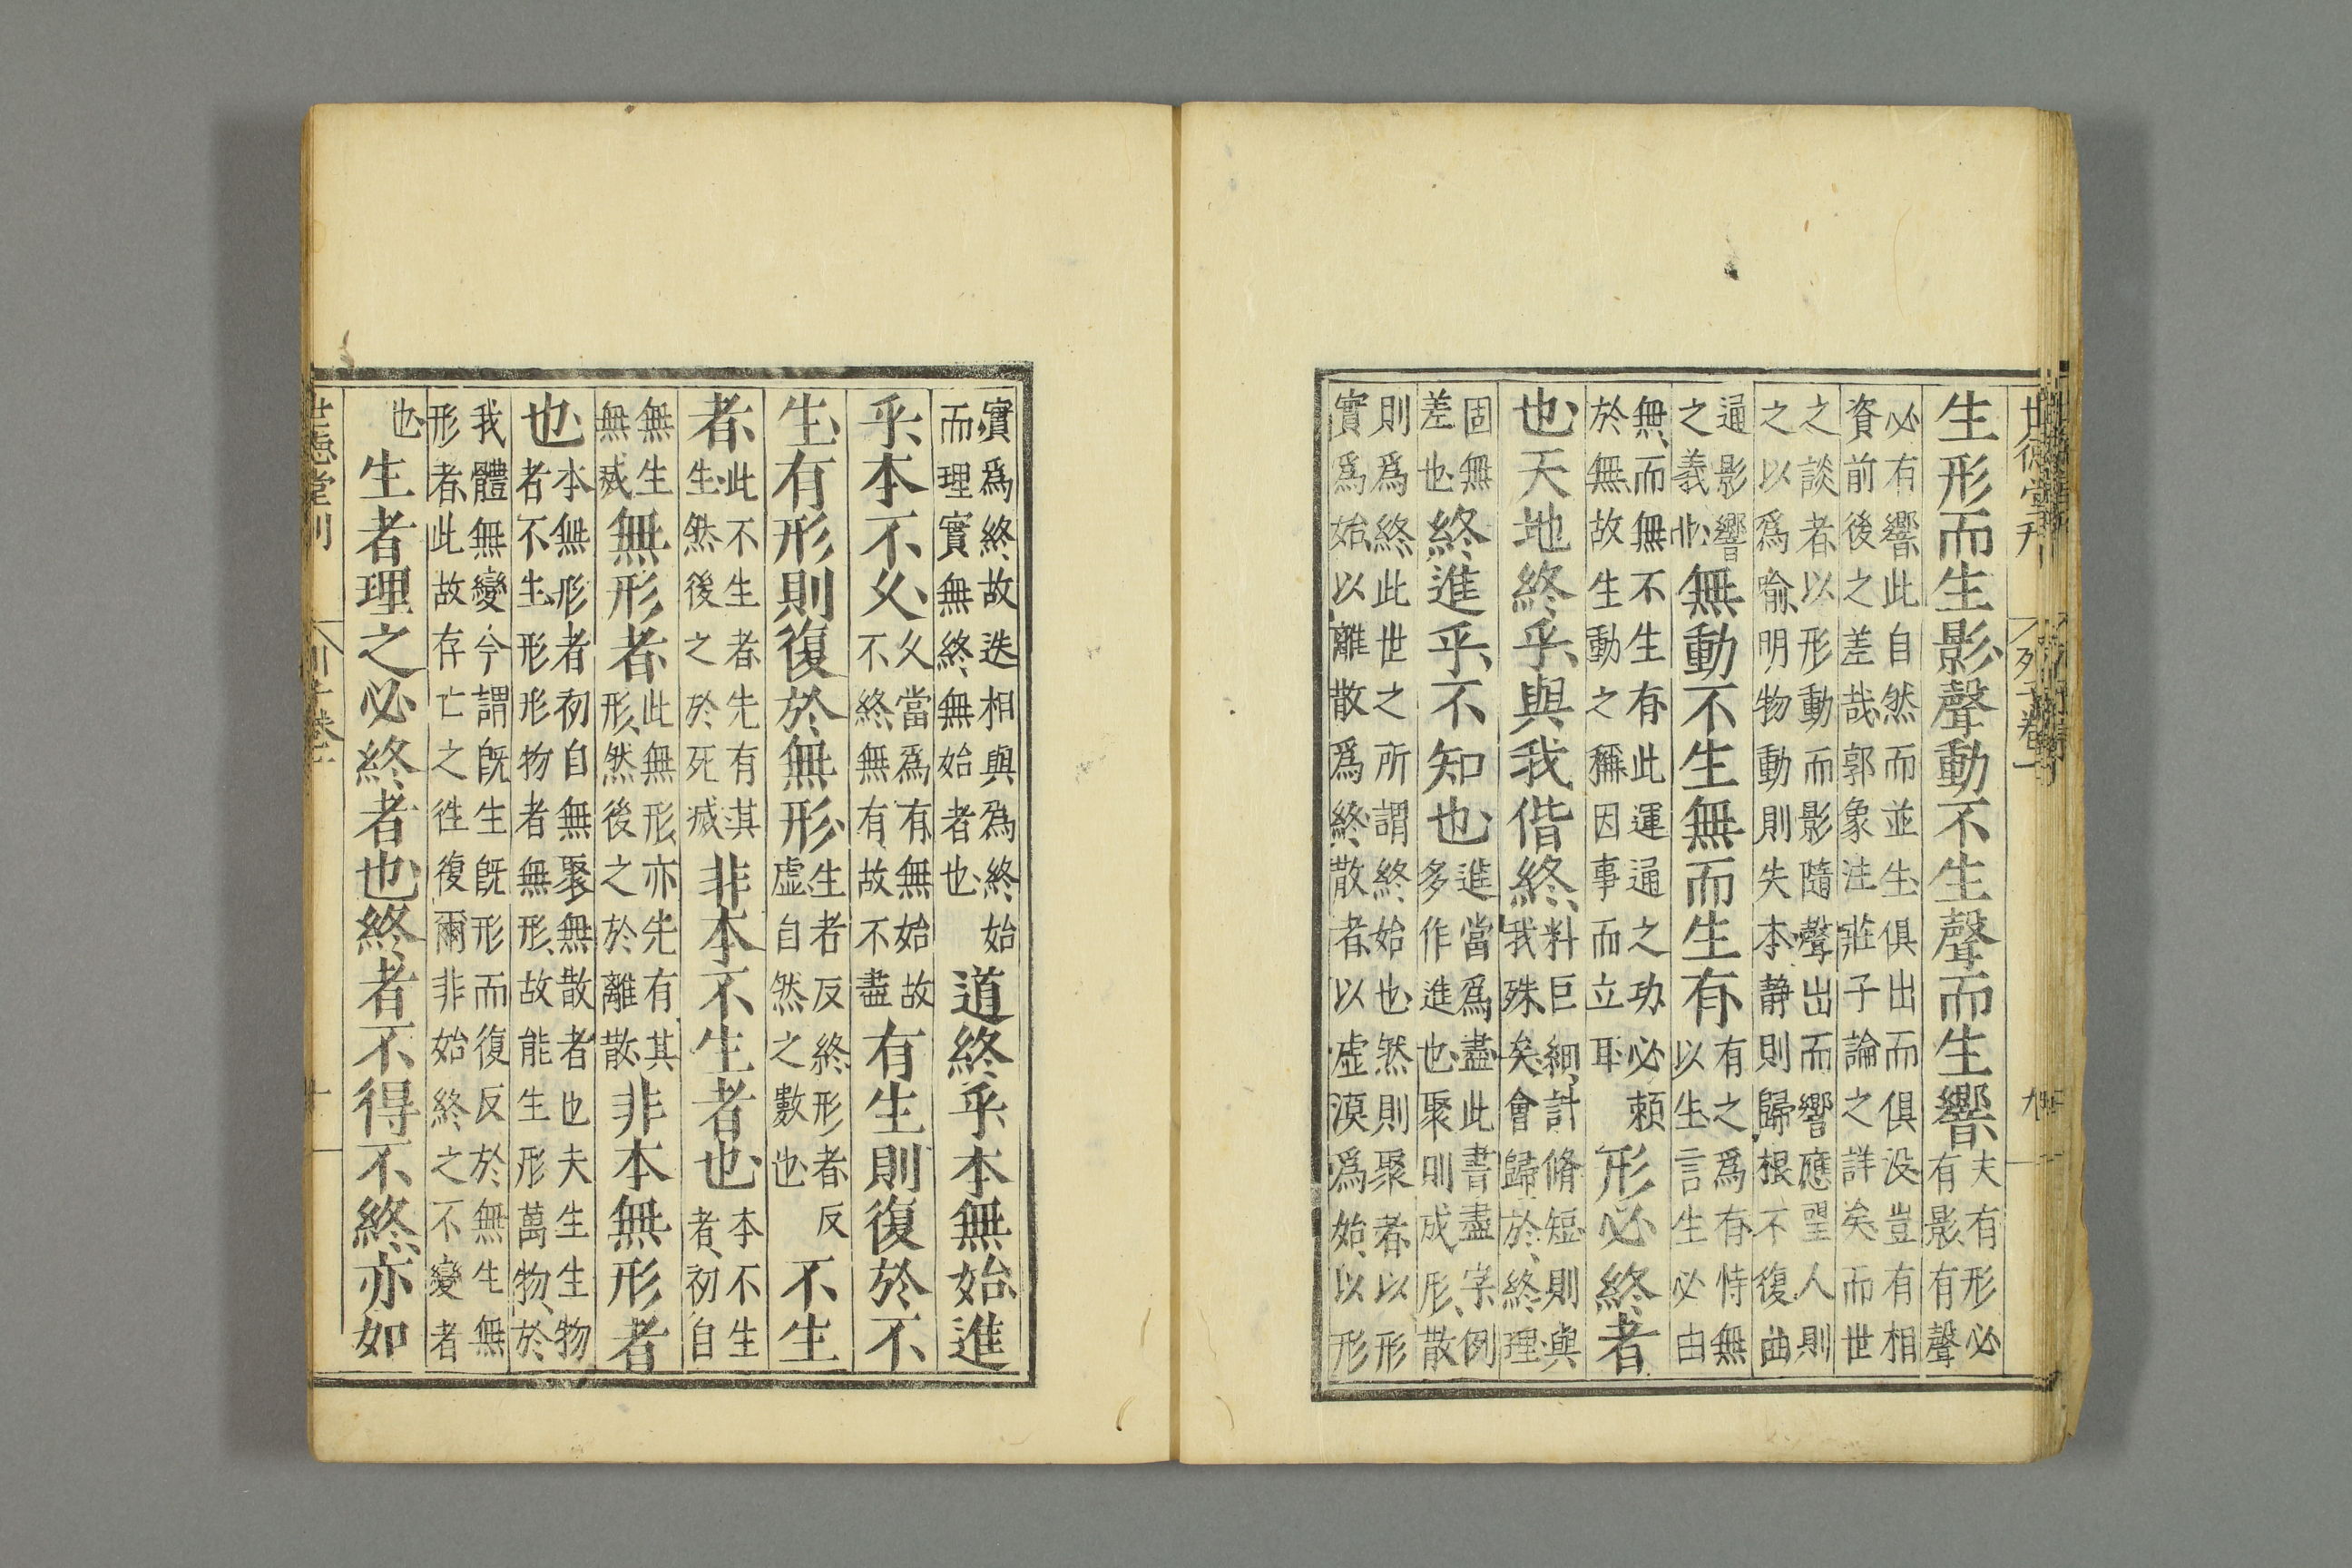 世德堂刊 列子卷一 九
生形而生影聲動不生聲而生響夫有形必有影有聲
必有響此自然而並生俱出而俱没豈有相資前後之差哉郭象注莊子論之詳矣而世
之談者以形動而影隨聲出而響應聖人則之以爲喻明物動則失本静則歸根不復曲
通影響之義也無動不生無而生有有之爲有恃無以生言生必由
無而無不生有此運通之功必頼於無故生動之稱因事而立耳形必終者
也天地終乎與我偕終料巨細計脩短則與我殊矣會歸於終理
固無差也終進乎不知也進當爲盡此書盡字例多作進也聚則成形散
則爲終此世之所謂終始也然則聚者以形實爲始以離散爲終散者以虛漠爲始以形
實爲終故迭相與爲終始而理實無終無始者也道終乎本無始進
乎本不久久當爲有無始故不終無有故不盡有生則復於不
生有形則復於無形生者反終形者反虛自然之數也不生
者此不生者先有其生然後之於死滅非本不生者也本不生者初自
無生無滅無形者此無形亦先有其形然後之於離散非本無形者
也本無形者初自無聚無散者也夫生生物者不生形形物者無形故能生形萬物於
我體無變今謂既生既形而復反於無生無形者此故存亡之往復爾非始終之不變者
也生者理之必終者也終者不得不終亦如
世德堂刊